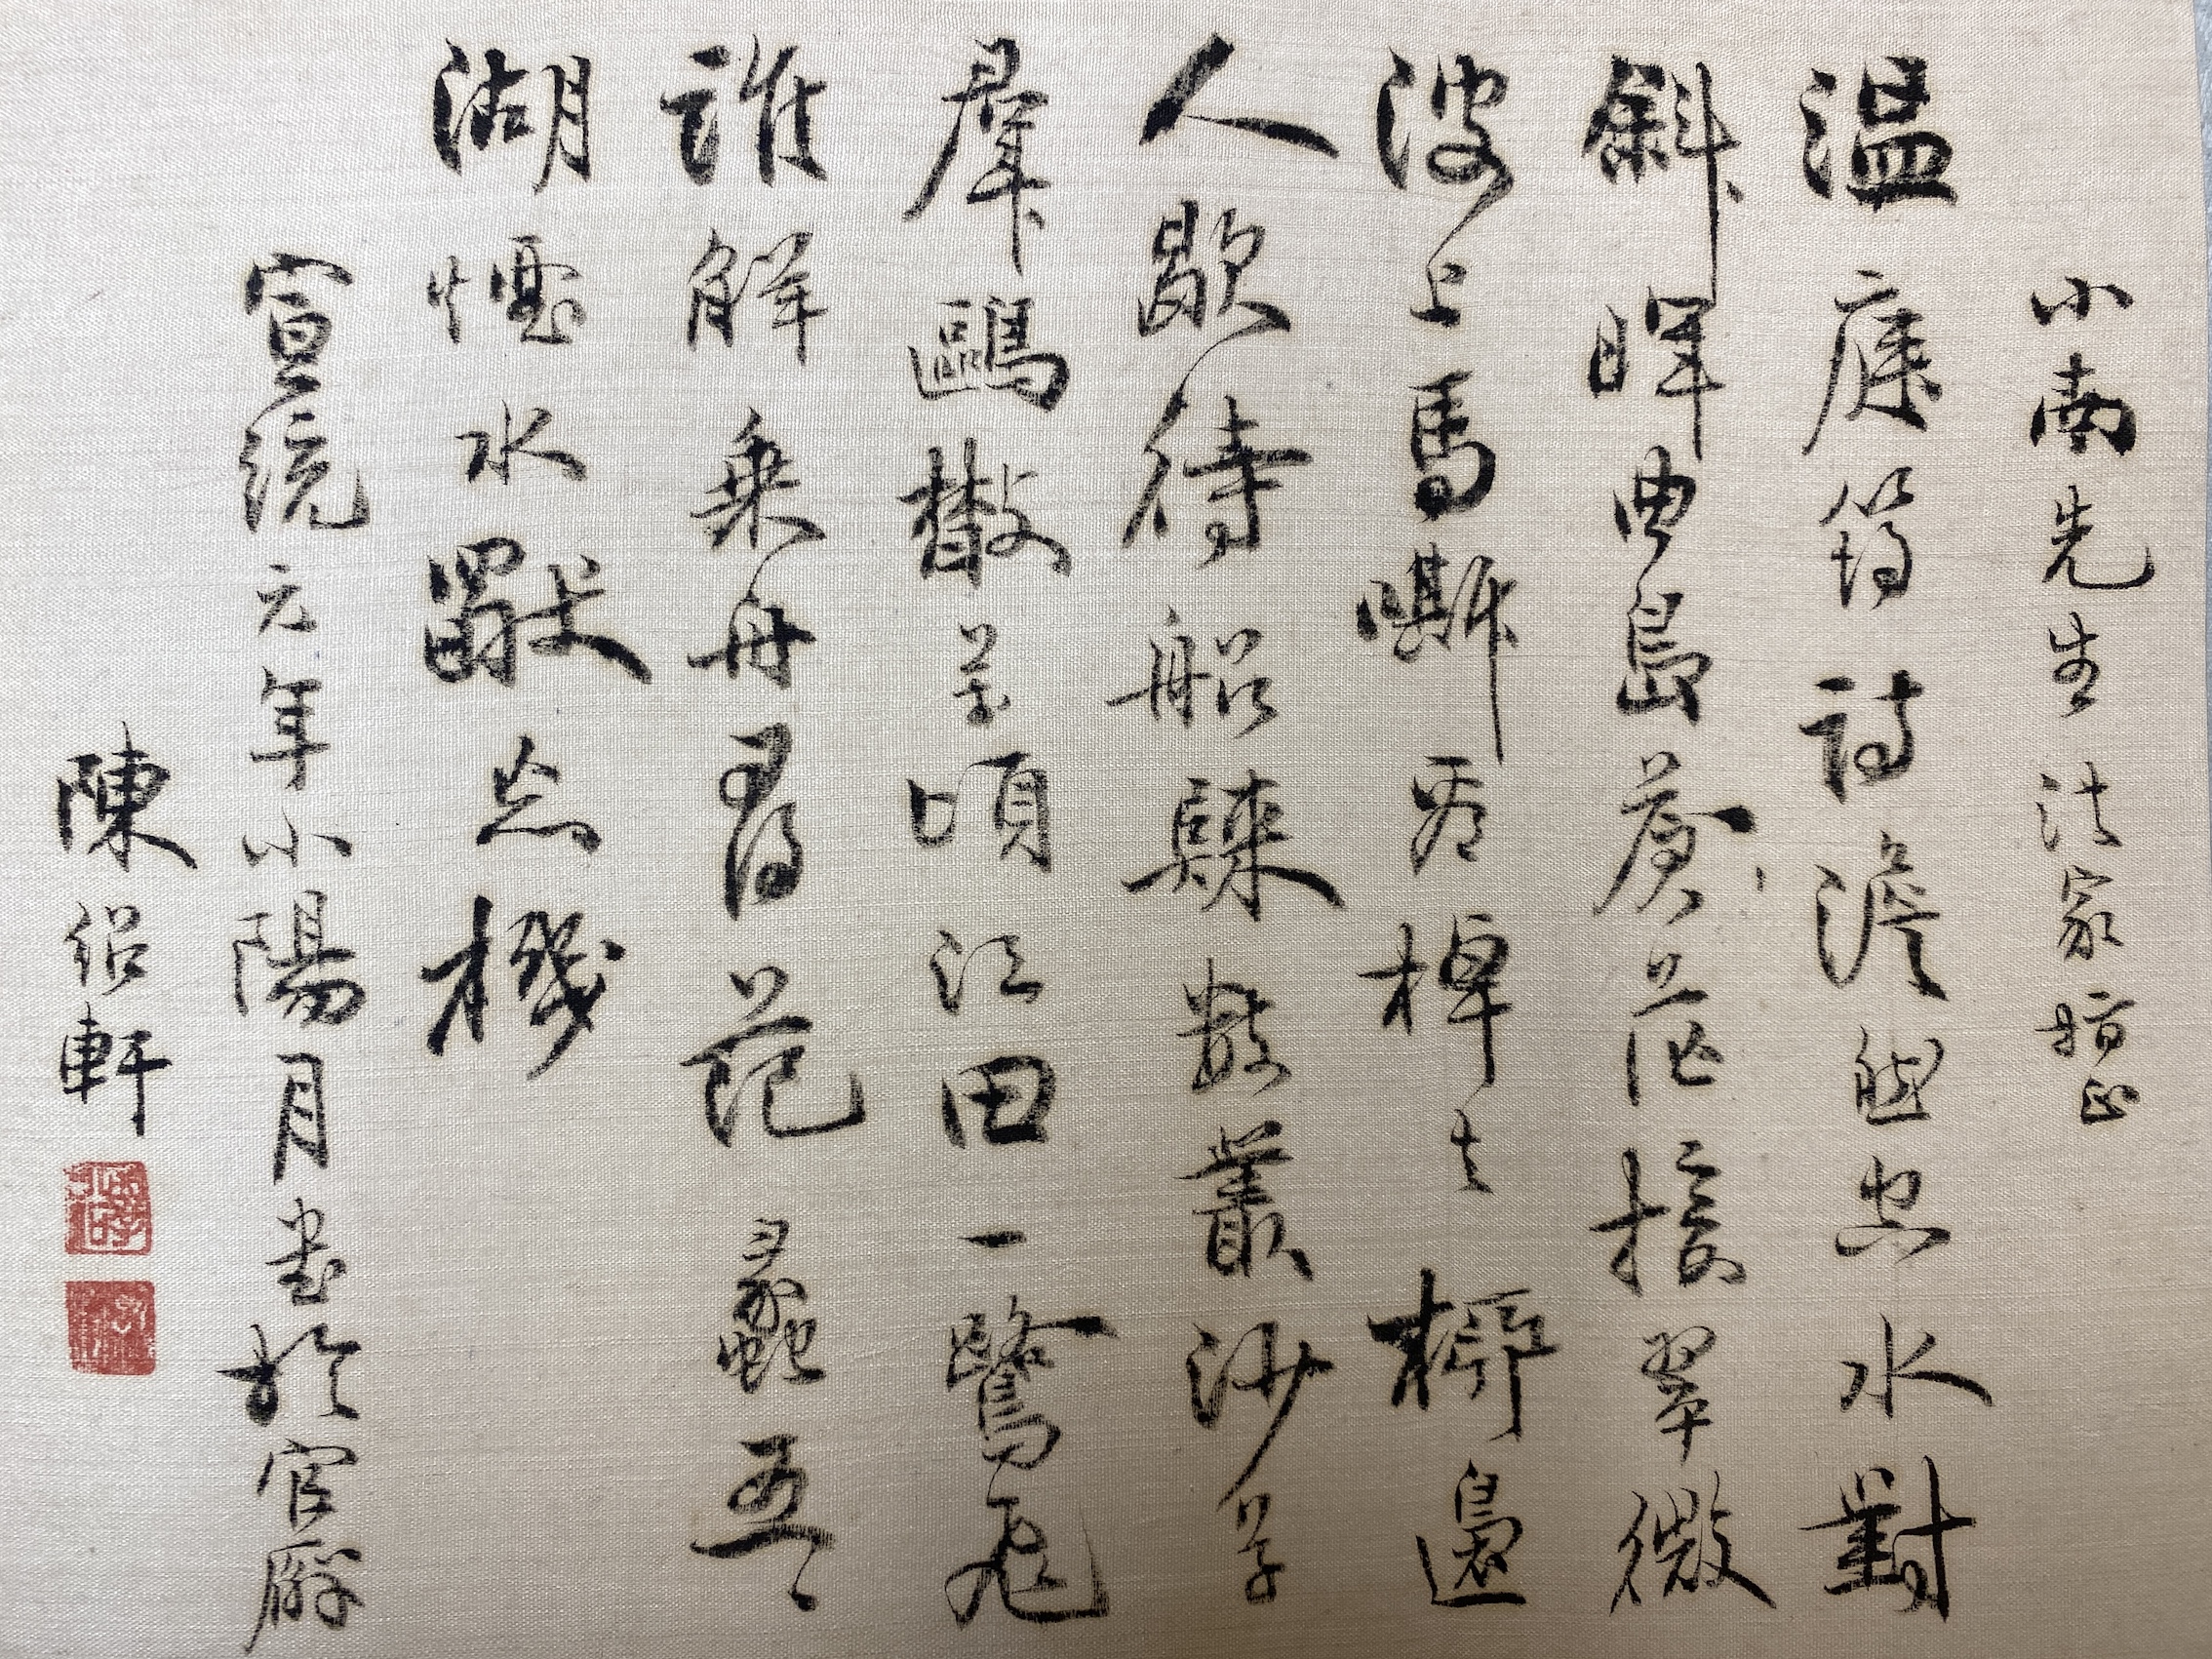 小南先生法家指正
溫庭筠詩澹然空水對
斜暉曲島蒼茫接翠微
波上馬嘶看棹去柳邊
人歇待船歸數叢沙草
羣鷗散萬頃江田一鷺飛
誰解乘舟尋范蠡五
湖煙水獨忘機
宣統元年小陽月書於官廨
陳紹軒